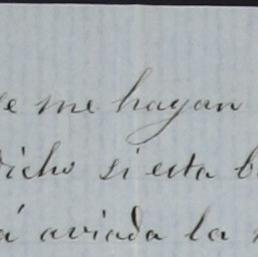 e me hayan
dicho si esta b
á aviada la